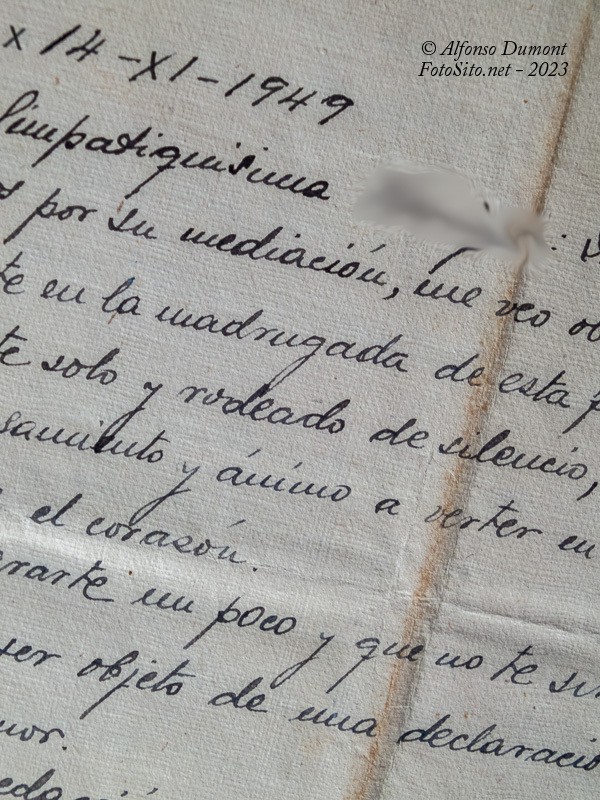 © Alfonso Dumont
FotoSito.net - 2023
x 14-XI-1949
Simpatiquisima
por su mediación, me veo
en la madrugada de esta
solo y rodeado de silencio,
y ánimo a verter en
el corazón.
un poco y que no te
ser objeto de una declaració